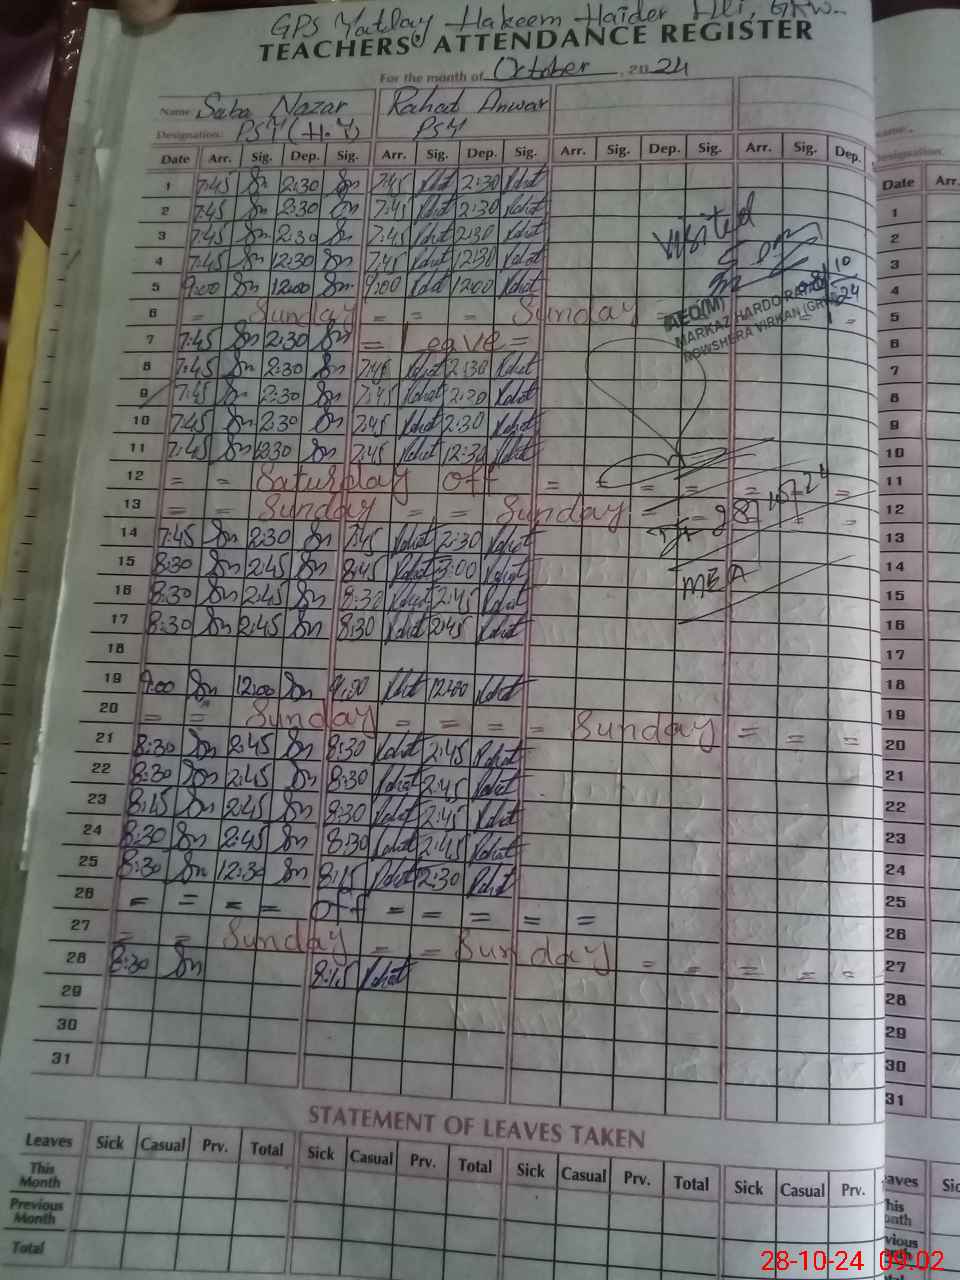 GPS Hakeem Haider
TEACHERS' ATTENDANCE REGISTER
For the month of October, 2024
Name: Saba Nazar Rahat Anwar
Designation: PST (H.T) PST
Date Arr. Sig. Dep. Sig. Arr. Sig. Dep. Sig. Arr. Sig. Dep. Sig. Arr. Sig. Dep.
1 7:45 Sn 2:30 Sn 7:45 Rahat 2:30 Rahat
2 7:45 Sn 2:30 Sn 7:45 Rahat 2:30 Rahat
3 7:45 Sn 2:30 Sn 7:45 Rahat 2:30 Rahat
4 7:45 Sn 12:30 Sn 7:45 Rahat 12:30 Rahat
5 9:00 Sn 12:00 Sn 9:00 Rahat 12:00 Rahat
6 = Sunday = = = Sunday =
7 7:45 Sn 2:30 Sn = Leave =
8 7:45 Sn 2:30 Sn 7:45 Rahat 2:30 Rahat
9 7:45 Sn 2:30 Sn 7:45 Rahat 2:30 Rahat
10 7:45 Sn 2:30 Sn 7:45 Rahat 2:30 Rahat
11 7:45 Sn 12:30 Sn 7:45 Rahat 12:30 Rahat
12 = = Saturday off = = = = =
13 = = Sunday = = Sunday = = = =
14 7:45 Sn 2:30 Sn 7:45 Rahat 2:30 Rahat
15 8:30 Sn 2:45 Sn 8:45 Rahat 3:00 Rahat
16 8:30 Sn 2:45 Sn 8:30 Rahat 2:45 Rahat
17 8:30 Sn 2:45 Sn 8:30 Rahat 2:45 Rahat
18
19 9:00 Sn 12:00 Sn 9:00 Rahat 12:00 Rahat
20 = = Sunday = = = = Sunday = = =
21 8:30 Sn 2:45 Sn 8:30 Rahat 2:45 Rahat
22 8:30 Sn 2:45 Sn 8:30 Rahat 2:45 Rahat
23 8:15 Sn 2:45 Sn 8:30 Rahat 2:45 Rahat
24 8:30 Sn 2:45 Sn 8:30 Rahat 2:45 Rahat
25 8:30 Sn 12:30 Sn 8:15 Rahat 2:30 Rahat
26 = = = = off = = = = =
27 = = Sunday = = Sunday = = = = =
28 8:30 Sn 8:15 Rahat
29
30
31
Visited
AEO(M)
MARKAZ HARDO
NOWSHERA VIRKAN (GRW)
28-10-24
MEA
STATEMENT OF LEAVES TAKEN
Leaves Sick Casual Prv. Total Sick Casual Prv. Total Sick Casual Prv. Total Sick Casual Prv.
This Month
Previous Month
Total
Date Arr.
1
2
3
4
5
6
7
8
9
10
11
12
13
14
15
16
17
18
19
20
21
22
23
24
25
26
27
28
29
30
31
28-10-24 09:02